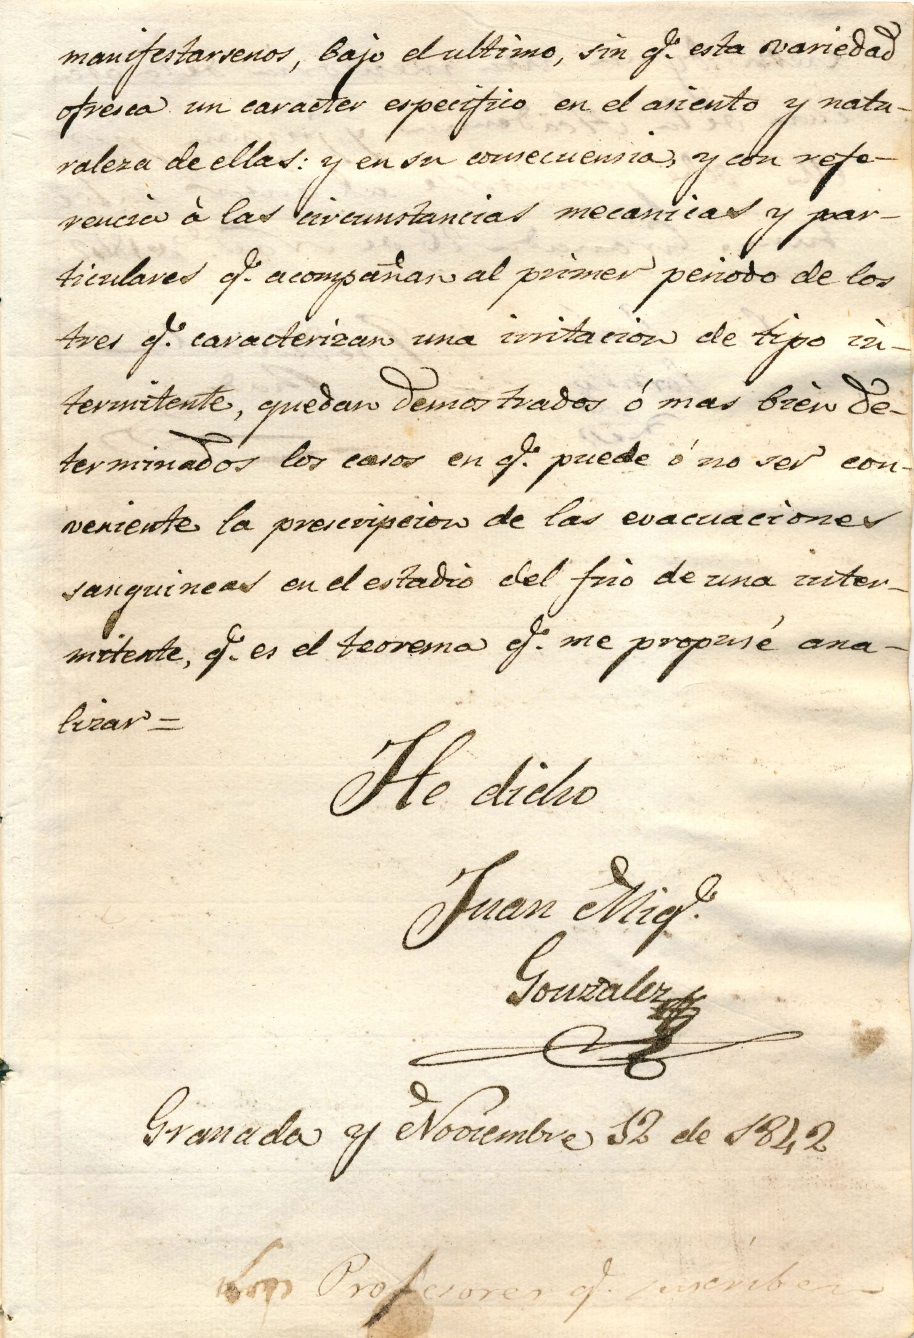 manifestarsenos, bajo el ultimo, sin q.e esta variedad
ofresca un caracter especifico en el asiento y natu-
raleza de ellas: y en su consecuencia, y con refe-
rencia à las circunstancias mecanicas y par-
ticulares q.e acompañan al primer periodo de los
tres q.e caracterizan una irritacion de tipo in-
termitente, quedan demostrados ó mas bien de-
terminados los casos en q.e puede ó no ser con-
veniente la prescripcion de las evacuaciones
sanguineas en el estadio del frio de una inter-
mitente, q.e es el teorema q.e me propusé ana-
lizar=
He dicho
Juan Mig.l
Gonzalez
Granada y Noviembre 12 de 1842
Los Profesores q.e suscriben